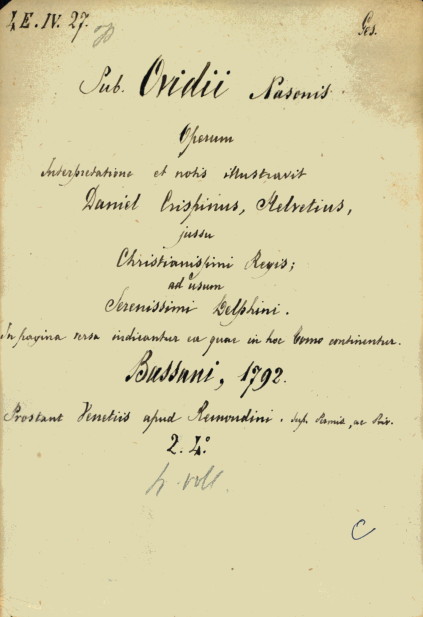 Z E. IV. 27.
Ges.
Pub. Ovidii Nasonis
Operum
Interpretatione et notis illustravit
Daniel Crispinus, Helvetius,
jussu
Christianissimi Regis;
ad usum
Serenissimi Delphini.
In pagina versa indicantur ea quae in hoc tomo continentur.
Bassani, 1792.
Prostant Venetiis apud Remondini. Sup. Permis, ac Priv.
2. 4°
voll.
C